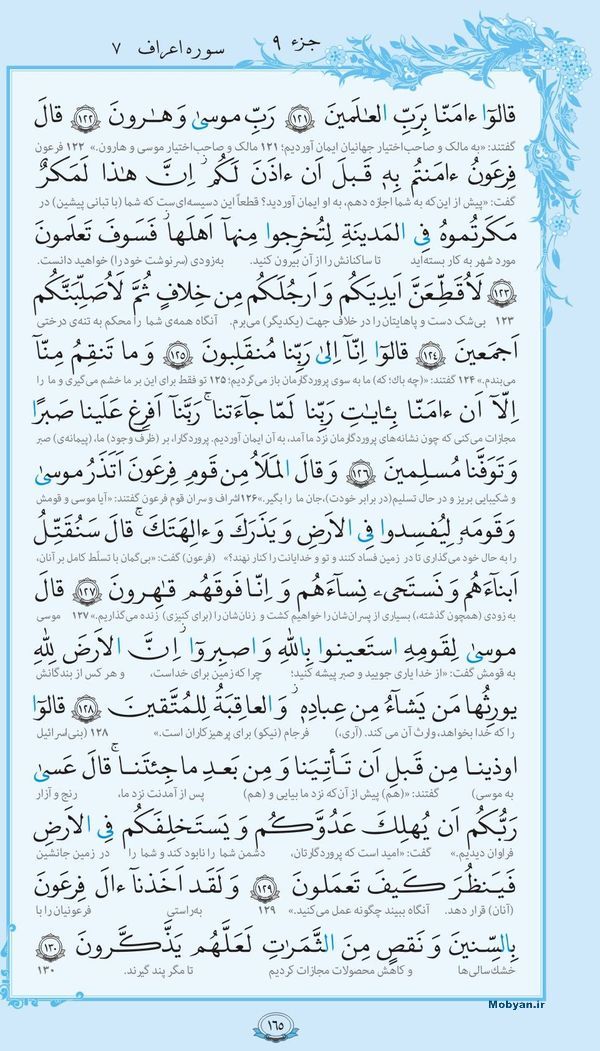 جزء ۹ سوره اعراف ۷
قالوٓا ءامَنّا بِرَبِّ العـٰلَمينَ ۱۲۱ رَبِّ موسىٰ وَ هـٰرونَ ۱۲۲ قالَ
گفتند: «به مالک و صاحب‌اختیار جهانیان ایمان آوردیم؛ ۱۲۱ مالک و صاحب‌اختیار موسی و هارون.» ۱۲۲ فرعون
فِرعَونُ ءامَنتُم بِهِ قَبلَ اَن ءاذَنَ لَكُم اِنَّ هـٰذا لَمَكرٌ
گفت: «پیش از این‌که به شما اجازه دهم، به او ایمان آوردید؟ قطعاً این دسیسه‌ای‌ست که شما (با تبانی پیشین) در
مَكَرتُموهُ فِى المَدينَةِ لِتُخرِجوا مِنهآ اَهلَها فَسَوفَ تَعلَمونَ
مورد شهر به کار بسته‌اید تا ساکنانش را از آن بیرون کنید. به‌زودی (سرنوشت خود را) خواهید دانست.
۱۲۳ لَاُقَطِّعَنَّ اَيدِيَكُم وَ اَرجُلَكُم مِن خِلافٍ ثُمَّ لَاُصَلِّبَنَّكُم
۱۲۳ بی‌شک دست و پاهایتان را در خلاف جهت (یکدیگر) می‌برم. آنگاه همه‌ی شما را محکم به تنه‌ی درختی
اَجمَعينَ ۱۲۴ قالوٓا اِنّآ اِلىٰ رَبِّنا مُنقَلِبونَ ۱۲۵ وَ ما تَنقِمُ مِنّآ
می‌بندم.» ۱۲۴ گفتند: «(چه باک؛ که) ما به سوی پروردگارمان باز می‌گردیم؛ ۱۲۵ تو فقط برای این بر ما خشم می‌گیری و ما را
اِلّآ اَن ءامَنّا بِـٔايـٰتِ رَبِّنا لَمّا جآءَتنا رَبَّنآ اَفرِغ عَلَينا صَبرًا
مجازات می‌کنی که چون نشانه‌های پروردگارمان نزد ما آمد، به آن ایمان آوردیم. پروردگارا، بر (ظرف وجود) ما، (پیمانه‌ی) صبر
وَ تَوَفَّنا مُسلِمينَ ۱۲۶ وَ قالَ المَلَأُ مِن قَومِ فِرعَونَ اَتَذَرُ موسىٰ
و شکیبایی بریز و در حال تسلیم (در برابر خودت)، جان ما را بگیر.» ۱۲۶ اشراف و سران قوم فرعون گفتند: «آیا موسی و قومش
وَ قَومَهُ لِيُفسِدوا فِى الاَرضِ وَ يَذَرَكَ وَ ءالِهَتَكَ قالَ سَنُقَتِّلُ
را به حال خود می‌گذاری تا در زمین فساد کنند و تو و خدایانت را کنار نهند؟» (فرعون) گفت: «بی‌گمان با تسلّط کامل بر آنان،
اَبنآءَهُم وَ نَستَحيى نِسآءَهُم وَ اِنّا فَوقَهُم قـٰهِرونَ ۱۲۷ قالَ
به‌زودی (همچون گذشته،) بسیاری از پسران‌شان را خواهیم کشت و زنان‌شان را (برای کنیزی) زنده می‌گذاریم.» ۱۲۷ موسی
موسىٰ لِقَومِهِ استَعينوا بِاللهِ وَ اصبِروٓا اِنَّ الاَرضَ لِلّٰهِ
به قومش گفت: «از خدا یاری جویید و صبر پیشه کنید؛ چرا که زمین برای خداست، و هر کس از بندگانش
يورِثُها مَن يَشآءُ مِن عِبادِهِ وَ العاقِبَةُ لِلمُتَّقينَ ۱۲۸ قالوٓا
را که خدا بخواهد، وارث آن می کند. (آری،) فرجام (نیکو) برای پرهیزکاران است.» ۱۲۸ (بنی‌اسرائیل
اوذينا مِن قَبلِ اَن تَأتِيَنا وَ مِن بَعدِ ما جِئتَنا قالَ عَسىٰ
به موسی) گفتند: «(هم) پیش از آن‌که نزد ما بیایی و (هم) پس از آمدنت نزد ما، رنج و آزار
رَبُّكُم اَن يُهلِكَ عَدُوَّكُم وَ يَستَخلِفَكُم فِى الاَرضِ
فراوان دیدیم.» گفت: «امید است که پروردگارتان، دشمن شما را نابود کند و شما را در زمین جانشین
فَيَنظُرَ كَيفَ تَعمَلونَ ۱۲۹ وَ لَقَد اَخَذنآ ءالَ فِرعَونَ
(آنان) قرار دهد. آنگاه ببیند چگونه عمل می‌کنید.» ۱۲۹ به‌راستی فرعونیان را با
بِالسِّنينَ وَ نَقصٍ مِنَ الثَّمَرٰتِ لَعَلَّهُم يَذَّكَّرونَ ۱۳۰
خشک‌سالی‌ها و کاهش محصولات مجازات کردیم تا مگر پند گیرند. ۱۳۰
۱۶۵
Mobyan.ir